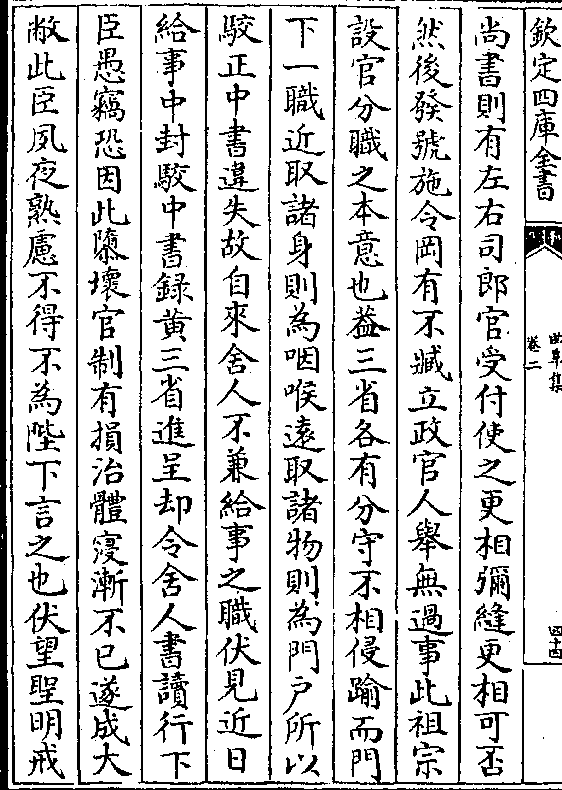 欽定四庫全書
曲阜集
卷二
四十四
尚書則有左右司郎官受付使之更相彌縫更相可否
然後發號施令罔有不臧立政官人舉無過事此祖宗
設官分職之本意也葢三省各有分守不相侵踰而門
下一職近取諸身則為咽喉遠取諸物則為門户所以
駮正中書違失故自來舍人不兼給事之職伏見近日
給事中封駮中書録黄三省進呈却令舍人書讀行下
臣愚竊恐因此隳壞官制有損治體寖漸不已遂成大
敝此臣夙夜熟慮不得不為陛下言之也伏望聖明戒